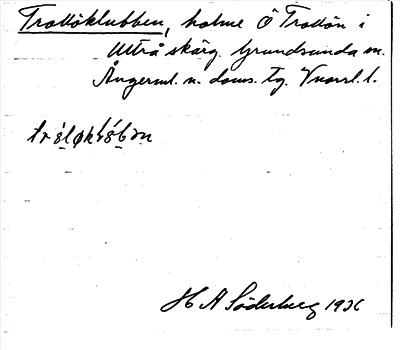 Trollöklubben, holme Ö Trollön i
Ultrå skärg. Grundsunda sn.
Ångerml. n. doms. tg. Vnorrl. l.
H A Söderberg 1936